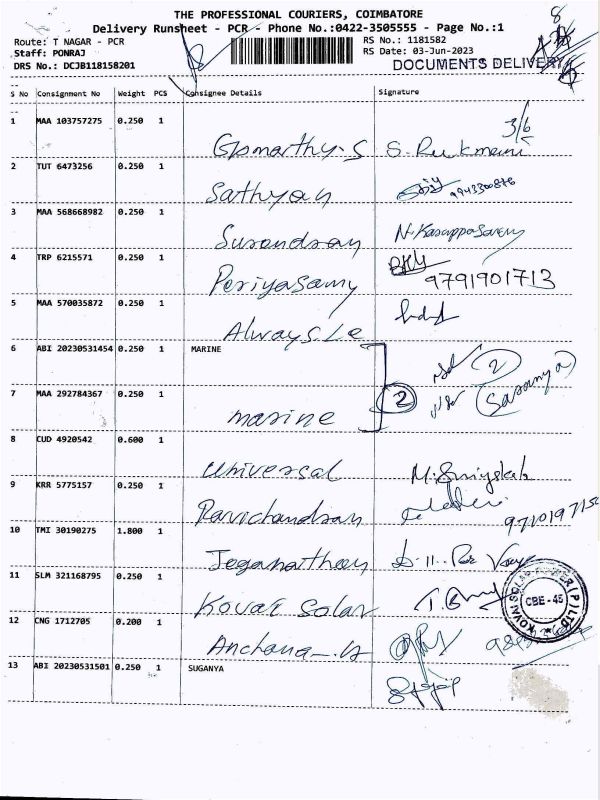 THE PROFESSIONAL COURIERS, COIMBATORE
Delivery Runsheet - PCR - Phone No.:0422-3505555 - Page No.:1
Route: T NAGAR - PCR
RS No.: 1181582
Staff: PONRAJ
RS Date: 03-Jun-2023
DRS No.: DCJB118158201
DOCUMENTS DELIVERY
S No Consignment No Weight PCS Consignee Details Signature
1 MAA 103757275 0.250 1
3/6
2 TUT 6473256 0.250 1
Sathyan
9943300876
3 MAA 568668982 0.250 1
Surendran
4 TRP 6215571 0.250 1
Periyasamy 9791901713
5 MAA 570035872 0.250 1
Always
6 ABI 20230531454 0.250 1 MARINE
2
7 MAA 292784367 0.250 1
marine 2 (Saranya)
8 CUD 4920542 0.600 1
universal
9 KRR 5775157 0.250 1
Ravichandran
10 TMI 30190275 1.800 1
11 SLM 321168795 0.250 1
Kovai Solar
CBE-45
12 CNG 1712705 0.200 1
13 ABI 20230531501 0.250 1 SUGANYA